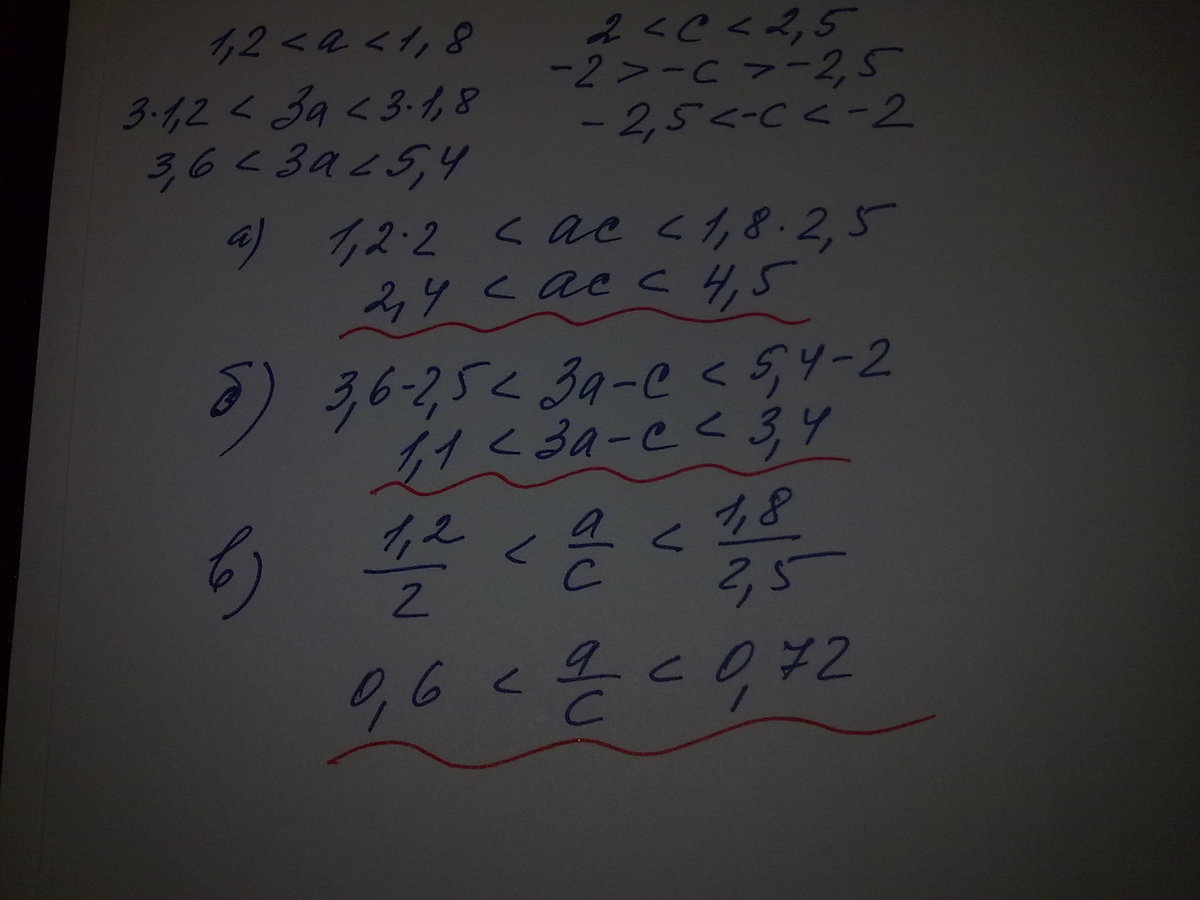 1,2 < a < 1,8
2 < c < 2,5
-2 > -c > -2,5
3·1,2 < 3a < 3·1,8
-2,5 < -c < -2
3,6 < 3a < 5,4
а) 1,2·2 < ac < 1,8·2,5
2,4 < ac < 4,5
б) 3,6-2,5 < 3a-c < 5,4-2
1,1 < 3a-c < 3,4
в) 1,2/2 < a/c < 1,8/2,5
0,6 < a/c < 0,72